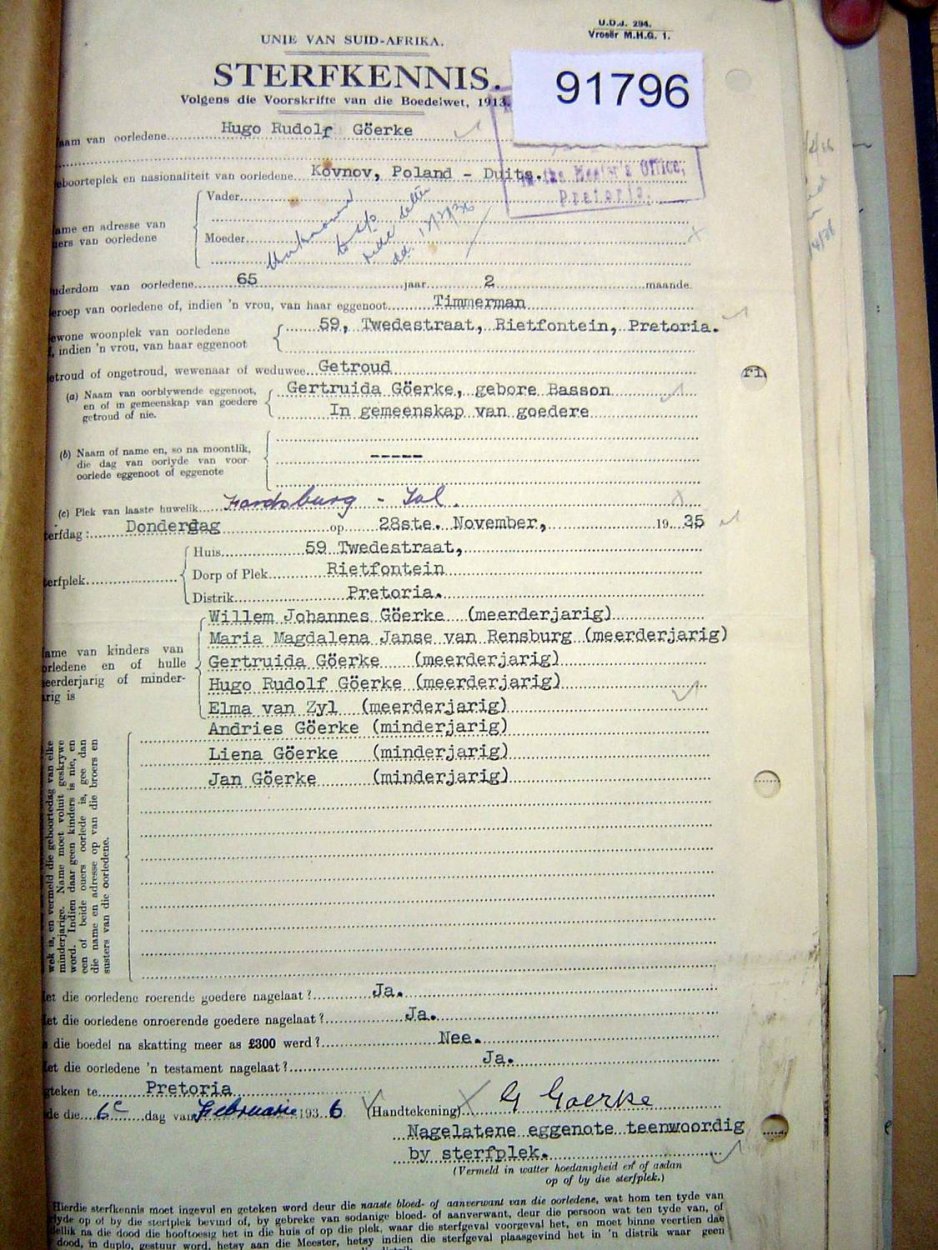 U.D.J. 294.
Vroeër M.H.G. 1.
UNIE VAN SUID-AFRIKA.
STERFKENNIS.
91796
Volgens die Voorskrifte van die Boedelwet, 1913.
aam van oorledene Hugo Rudolf Göerke
eboorteplek en nasionaliteit van oorledene Kovnov, Poland - Duits.
the Master's Office,
Pretoria.
ame en adresse van
uers van oorledene
Vader
Moeder
Unknown
to s/s
vide letter
dd. 13/2/36
uderdom van oorledene 65 jaar 2 maande.
eroep van oorledene of, indien 'n vrou, van haar eggenoot Timmerman
ewone woonplek van oorledene
f, indien 'n vrou, van haar eggenoot
59, Twedestraat, Rietfontein, Pretoria.
etroud of ongetroud, wewenaar of weduwee Getroud
(a) Naam van oorblywende eggenoot,
en of in gemeenskap van goedere
getroud of nie.
Gertruida Göerke, gebore Basson
In gemeenskap van goedere
(b) Naam of name en, so na moontlik,
die dag van oorlyde van voor-
oorlede eggenoot of eggenote
-----
(c) Plek van laaste huwelik
terfdag: Donderdag op 28ste. November, 1935
terfplek
Huis 59 Twedestraat,
Dorp of Plek Rietfontein
Distrik Pretoria.
ame van kinders van
orledene en of hulle
eerderjarig of minder-
arig is
Willem Johannes Göerke (meerderjarig)
Maria Magdalena Janse van Rensburg (meerderjarig)
Gertruida Göerke (meerderjarig)
Hugo Rudolf Göerke (meerderjarig)
Elma van Zyl (meerderjarig)
Andries Göerke (minderjarig)
Liena Göerke (minderjarig)
Jan Göerke (minderjarig)
wek is, en vermeld die geboortedag van elke
minderjarige. Name moet voluit geskrywe
word. Indien daar geen kinders is nie, en
een of beide ouers oorlede is, gee dan
die name en adresse op van die broers en
susters van die oorledene.
et die oorledene roerende goedere nagelaat? Ja.
et die oorledene onroerende goedere nagelaat? Ja.
s die boedel na skatting meer as £300 werd? Nee.
et die oorledene 'n testament nagelaat? Ja.
eteken te Pretoria
de die 6e dag van Februarie 1936
(Handtekening) G Goerke
Nagelatene eggenote teenwoordig
by sterfplek.
(Vermeld in watter hoedanigheid en of asdan
op of by die sterfplek.)
Hierdie sterfkennis moet ingevul en geteken word deur die naaste bloed- of aanverwant van die oorledene, wat hom ten tyde van
lyde op of by die sterfplek bevind of, by gebreke van sodanige bloed- of aanverwant, deur die persoon wat ten tyde van, of
dellik na die dood die hooftoesig het in die huis of op die plek, waar die sterfgeval voorgeval het, en moet binne veertien dae
dood, in duplo, gestuur word, hetsy aan die Meester, hetsy indien die sterfgeval plaasgevind het in 'n distrik waar geen